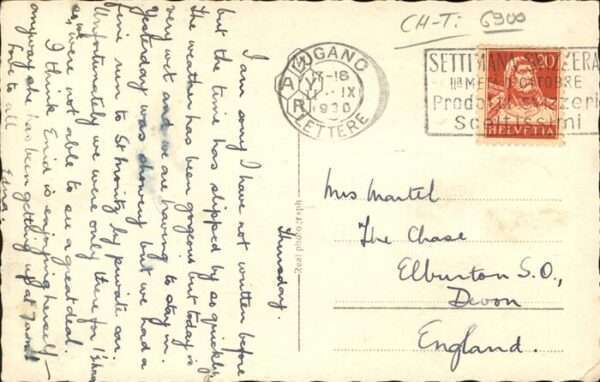 CH-T: 6900
LUGANO
LETTERE
SETTIMANA SVIZZERA
Prodotti svizzeri
Sceltissimi
20
HELVETIA
Real photograph
Thursday.
I am sorry I have not written before
but the time has slipped by so quickly.
The weather has been gorgeous but today is
very wet and we are having to stay in.
Yesterday was showery but we had a
fine run to St Moritz by private car.
Unfortunately we were only there for 1½ hrs
so, we were not able to see a great deal.
I think Enid is enjoying herself –
anyway she has been getting up at 7 a.m.!
Love to all
Mrs Martel
The Chase
Elburton S.O.,
Devon
England.